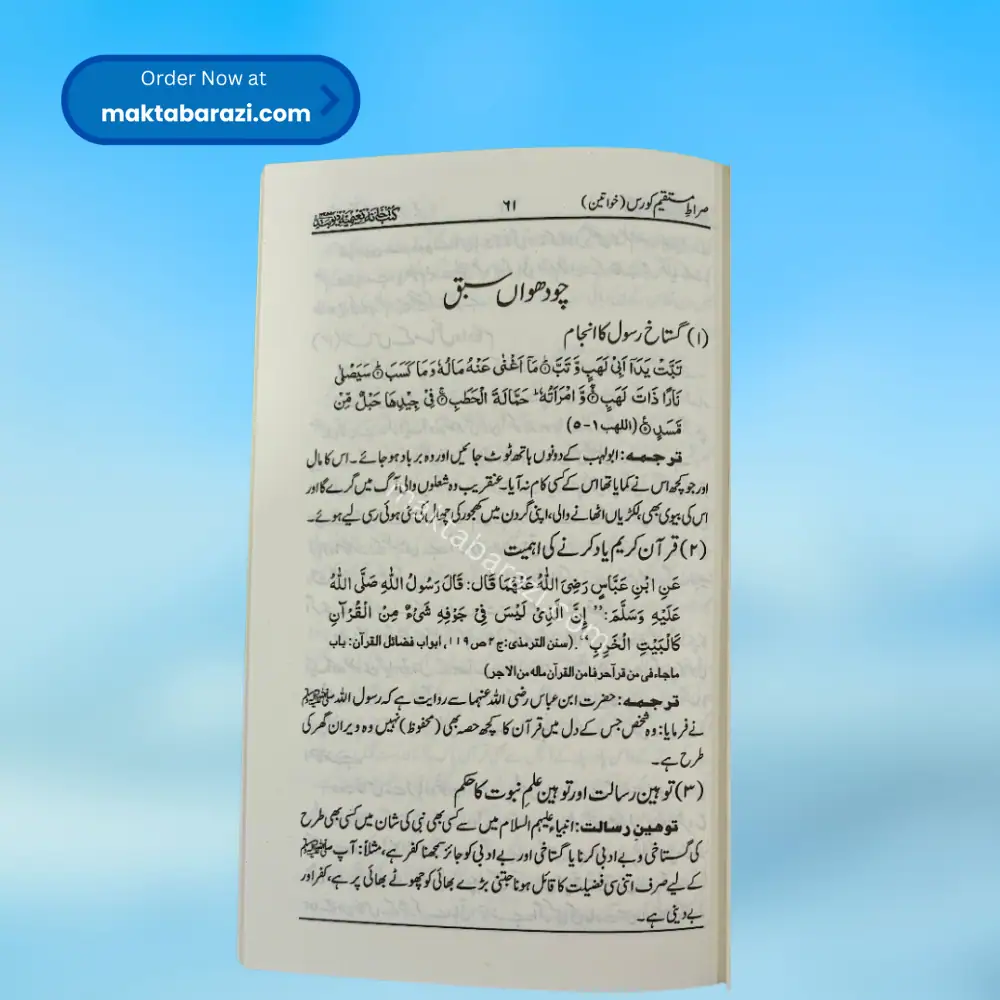 Order Now at
maktabarazi.com
صراطِ مستقیم کورس (خواتین)
۶۱
کتب خانہ نعیمیہ دیوبند
چودھواں سبق
(۱) گستاخ رسول کا انجام
تَبَّتْ يَدَآ اَبِىْ لَهَبٍ وَّ تَبَّ ۞ مَآ اَغْنٰى عَنْهُ مَالُهٗ وَمَا كَسَبَ ۞ سَيَصْلٰى
نَارًا ذَاتَ لَهَبٍ ۞ وَّ امْرَاَتُهٗ ؕ حَمَّالَةَ الْحَطَبِ ۞ فِىْ جِيْدِهَا حَبْلٌ مِّنْ
مَّسَدٍ ۞ (اللهب ۱-۵)
ترجمہ: ابولہب کے دونوں ہاتھ ٹوٹ جائیں اور وہ برباد ہو جائے۔ اس کا مال
اور جو کچھ اس نے کمایا تھا اس کے کسی کام نہ آیا۔ عنقریب وہ شعلوں والی آگ میں گرے گا اور
اس کی بیوی بھی، لکڑیاں اٹھانے والی، اپنی گردن میں کھجور کی چھال کی بنی ہوئی رسی لیے ہوئے۔
(۲) قرآن کریم یاد کرنے کی اہمیت
عَنِ ابْنِ عَبَّاسٍ رَضِىَ اللّٰهُ عَنْهُمَا قَالَ: قَالَ رَسُوْلُ اللّٰهِ صَلَّى اللّٰهُ
عَلَيْهِ وَسَلَّمَ: "اِنَّ الَّذِىْ لَيْسَ فِىْ جَوْفِهٖ شَىْءٌ مِنَ الْقُرْآنِ
كَالْبَيْتِ الْخَرِبِ". (سنن الترمذی: ج ۲ ص ۱۱۹، ابواب فضائل القرآن: باب
ماجاء فی من قرأ حرفا من القرآن ماله من الاجر)
ترجمہ: حضرت ابن عباس رضی اللہ عنہما سے روایت ہے کہ رسول اللہ ﷺ
نے فرمایا: وہ شخص جس کے دل میں قرآن کا کچھ حصہ بھی (محفوظ) نہیں وہ ویران گھر کی
طرح ہے۔
(۳) توہین رسالت اور توہین علم نبوت کا حکم
توہینِ رسالت: انبیاء علیہم السلام میں سے کسی بھی نبی کی شان میں کسی بھی طرح
کی گستاخی و بے ادبی کرنا یا گستاخی اور بے ادبی کو جائز سمجھنا کفر ہے، مثلاً: آپ ﷺ
کے لیے صرف اتنی سی فضیلت کا قائل ہونا جتنی بڑے بھائی کو چھوٹے بھائی پر ہے، کفر اور
بے دینی ہے۔
maktabarazi.com